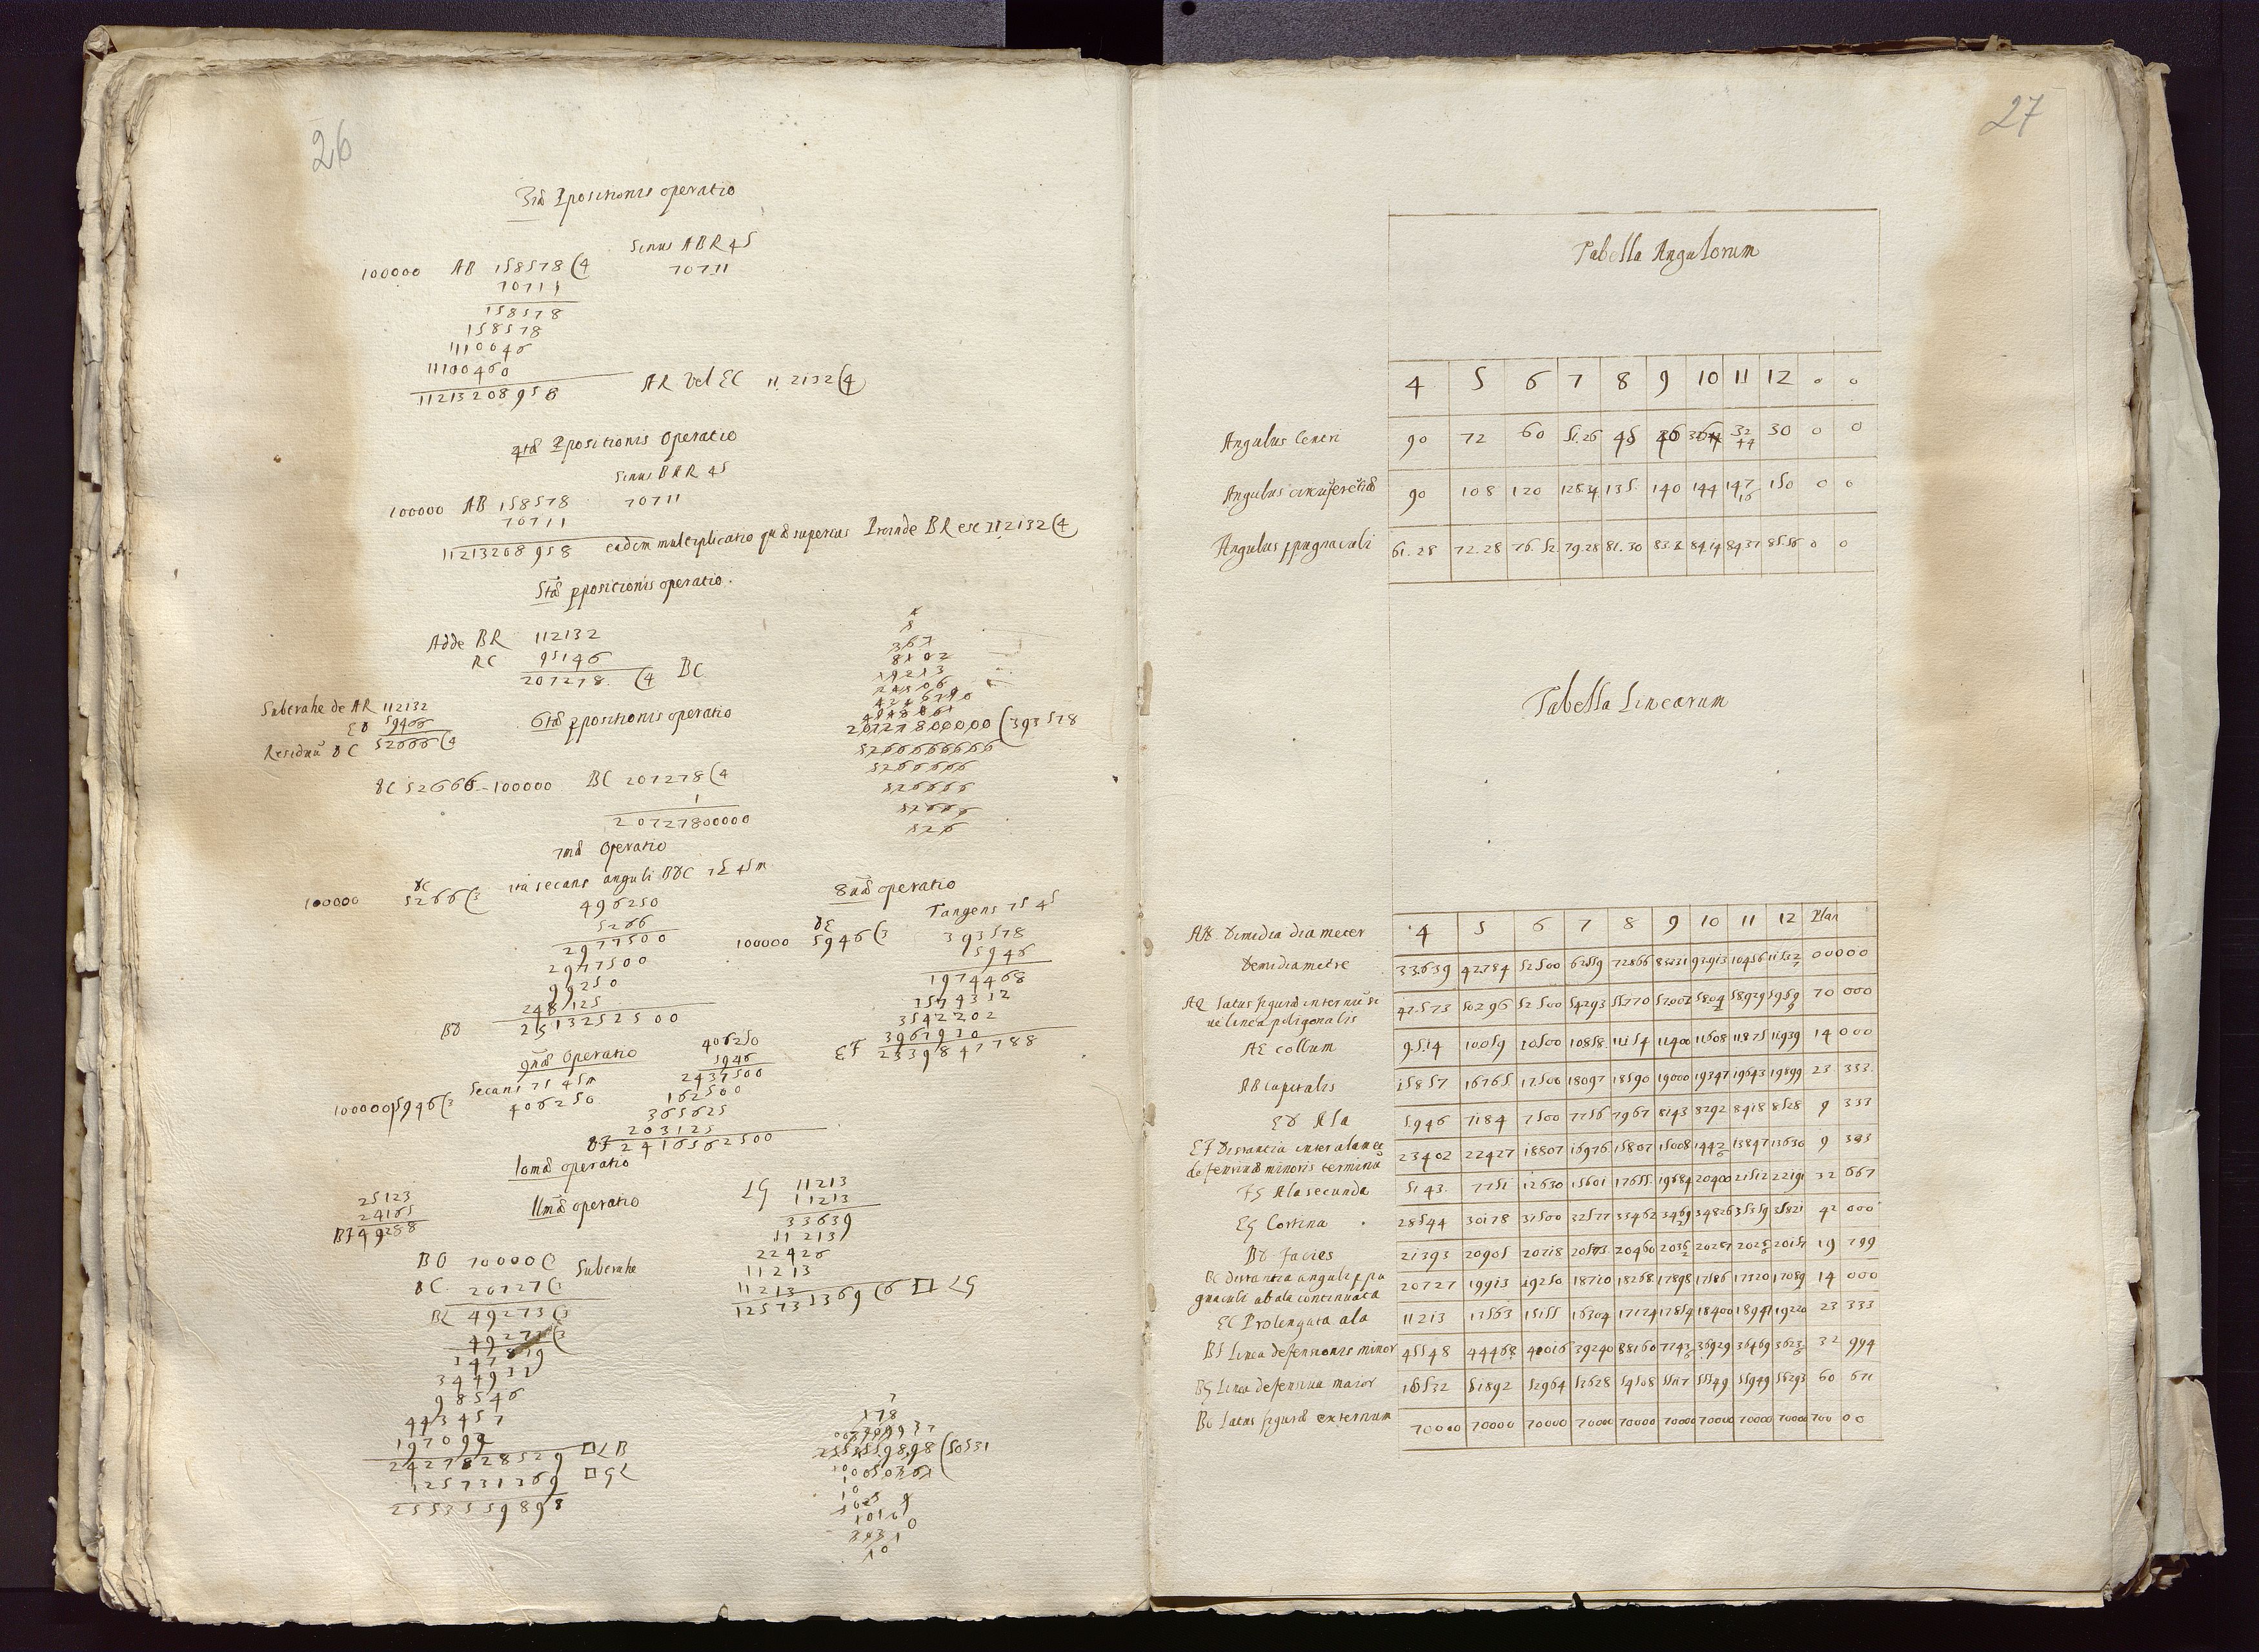 26
3iā ppositionis operatio
sinus ABR 45
100000 AB 158578 (4 70711
70711
158578
158578
1110046
11100460
11213208958 AR vel EC 112132 (4
4tā ppositionis operatio
sinus BAR 45
100000 AB 158578 70711
70711
11213208958 eadem multiplicatio quā superius Proinde BR est 112132 (4
5tā ppositionis operatio.
Adde BR 112132
RC 95146
207278 (4 BC
Subtrahe de AR 112132
59466
52666 (4
6tā ppositionis operatio
20727800000 (393578
52666666666
5266666
526666
52666
526
52666-100000 BC 207278 (4
1
20727800000
7mā operatio
100000 5266 (3 ita secans anguli 75 45 m
496250
5266
2977500
2977500
99250
248125
2513252500
8uā operatio
Tangens 75 45
100000 5946 (3 393578
5946
1974468
1574312
3542202
3967930
EF 2339847788
9nā operatio
Secans 75 45 m
100000 5946 (3 406250
406250
5946
2437500
162500
365625
203125
2416562500
10mā operatio
25123
24165
BF 49288
11mā operatio
LG 11213
11213
33639
11213
22426
11213
11213
125731369 (6 □ LG
BO 70000
20727 (3 Subtrahe
49273 (3
49273 (3
147819
344911
98546
443457
197092
2427828529 □ LB
125731369 □ GL
2553559898
178
2553559898 (50531
27
Tabella Angulorum
4 5 6 7 8 9 10 11 12 0 0
Angulus Centri 90 72 60 51.26 45 40 36 32 44 30 0 0
Angulus circūferētiā 90 108 120 128 34 135 140 144 147 16 150 0 0
Angulus ppugnaculi 61.28 72.28 76.52 79.28 81.30 83.8 84.14 84 37 85.56 0 0
Tabella Linearum
4 5 6 7 8 9 10 11 12 Plan
dimidia diameter
Demidiametre 33639 42784 52500 62559 72866 83231 93913 10456 11532 7 00000
latus figurā internū si
ue linea poligonalis 47573 50296 52500 54293 55770 57002 5804 58929 5969 70 000
AE collum 9514 10059 10500 10858 11154 11400 11608 11875 11939 14 000
AB capitalis 15857 16765 17500 18097 18590 19000 19347 19643 19899 23 333
Ala 5946 7184 7500 7756 7967 8143 8292 8418 8528 9 333
EF Distantia inter alam et
defensivā minoris terminū 23402 22427 18807 16976 15807 15008 1442 13847 13630 9 333
FG Ala secunda 5143 7751 12630 15601 17655 19684 20400 21512 22191 32 667
EG Cortina 28544 30178 31500 32577 33462 3469 34826 35359 35821 42 000
facies 21393 20905 20718 20573 20460 2036 20287 2025 20157 19 799
BC distantia anguli ppu
gnaculi ab ala continuata 20727 19913 19250 18710 18268 17898 17586 17320 17089 14 000
EC Prolengata ala 11213 13563 15155 16304 17174 17854 18400 18941 19220 23 333
BF Linea defensionis minor 45548 44468 40016 39240 38160 7743 36929 36469 3623 32 994
BG Linea defensiua maior 16532 51892 52964 53628 54508 55117 55549 55949 56293 60 671
Bo latus figurā externum 70000 70000 70000 70000 70000 70000 70000 70000 70000 700 00